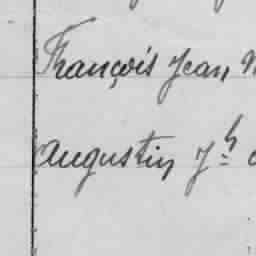 François Jean
Augustin Jh